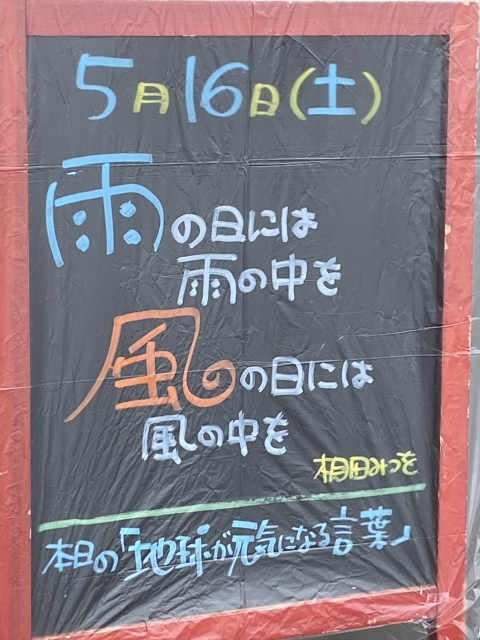 5月16日(土)
雨の日には
雨の中を
風のの日には
風の中を
相田みつを
本日の「地球が元気になる言葉」